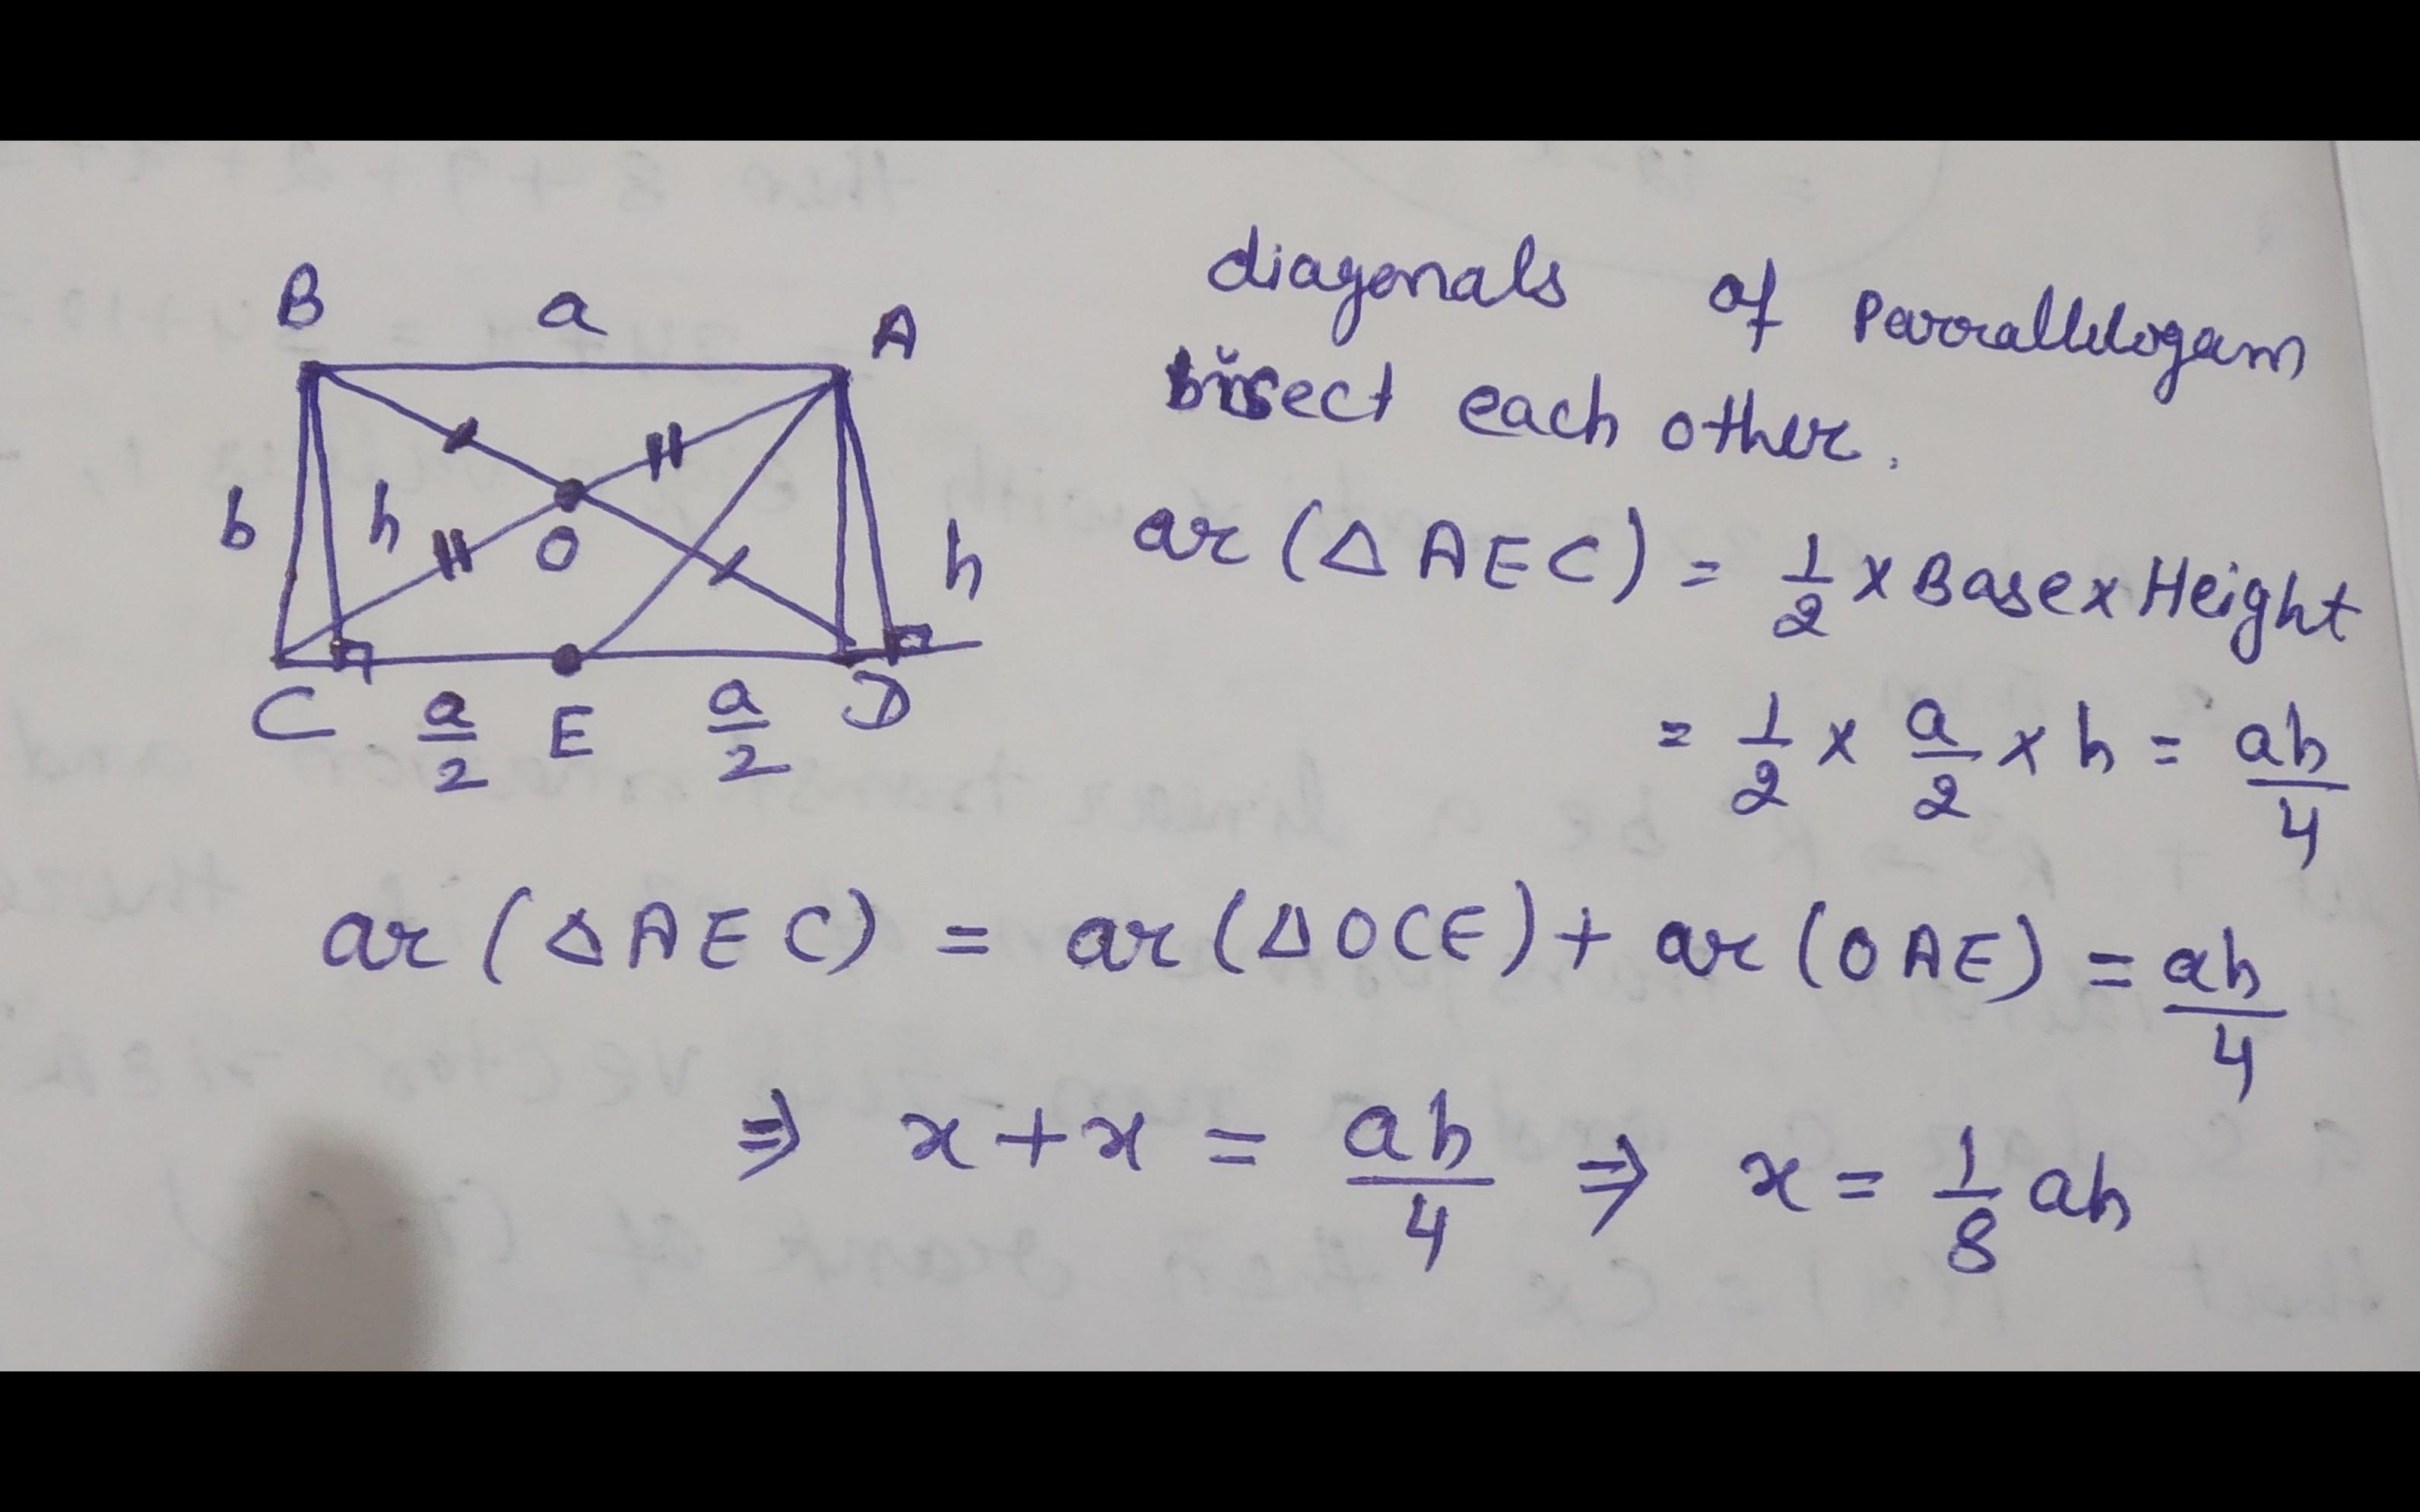 B a A
b h O h
C a/2 E a/2 D
diagonals of Parrallelogam
bisect each other.
ar (△ AEC) = 1/2 × Base × Height
= 1/2 × a/2 × h = ah/4
ar (△ AEC) = ar (△OCE) + ar (OAE) = ah/4
⇒ x + x = ah/4 ⇒ x = 1/8 ah